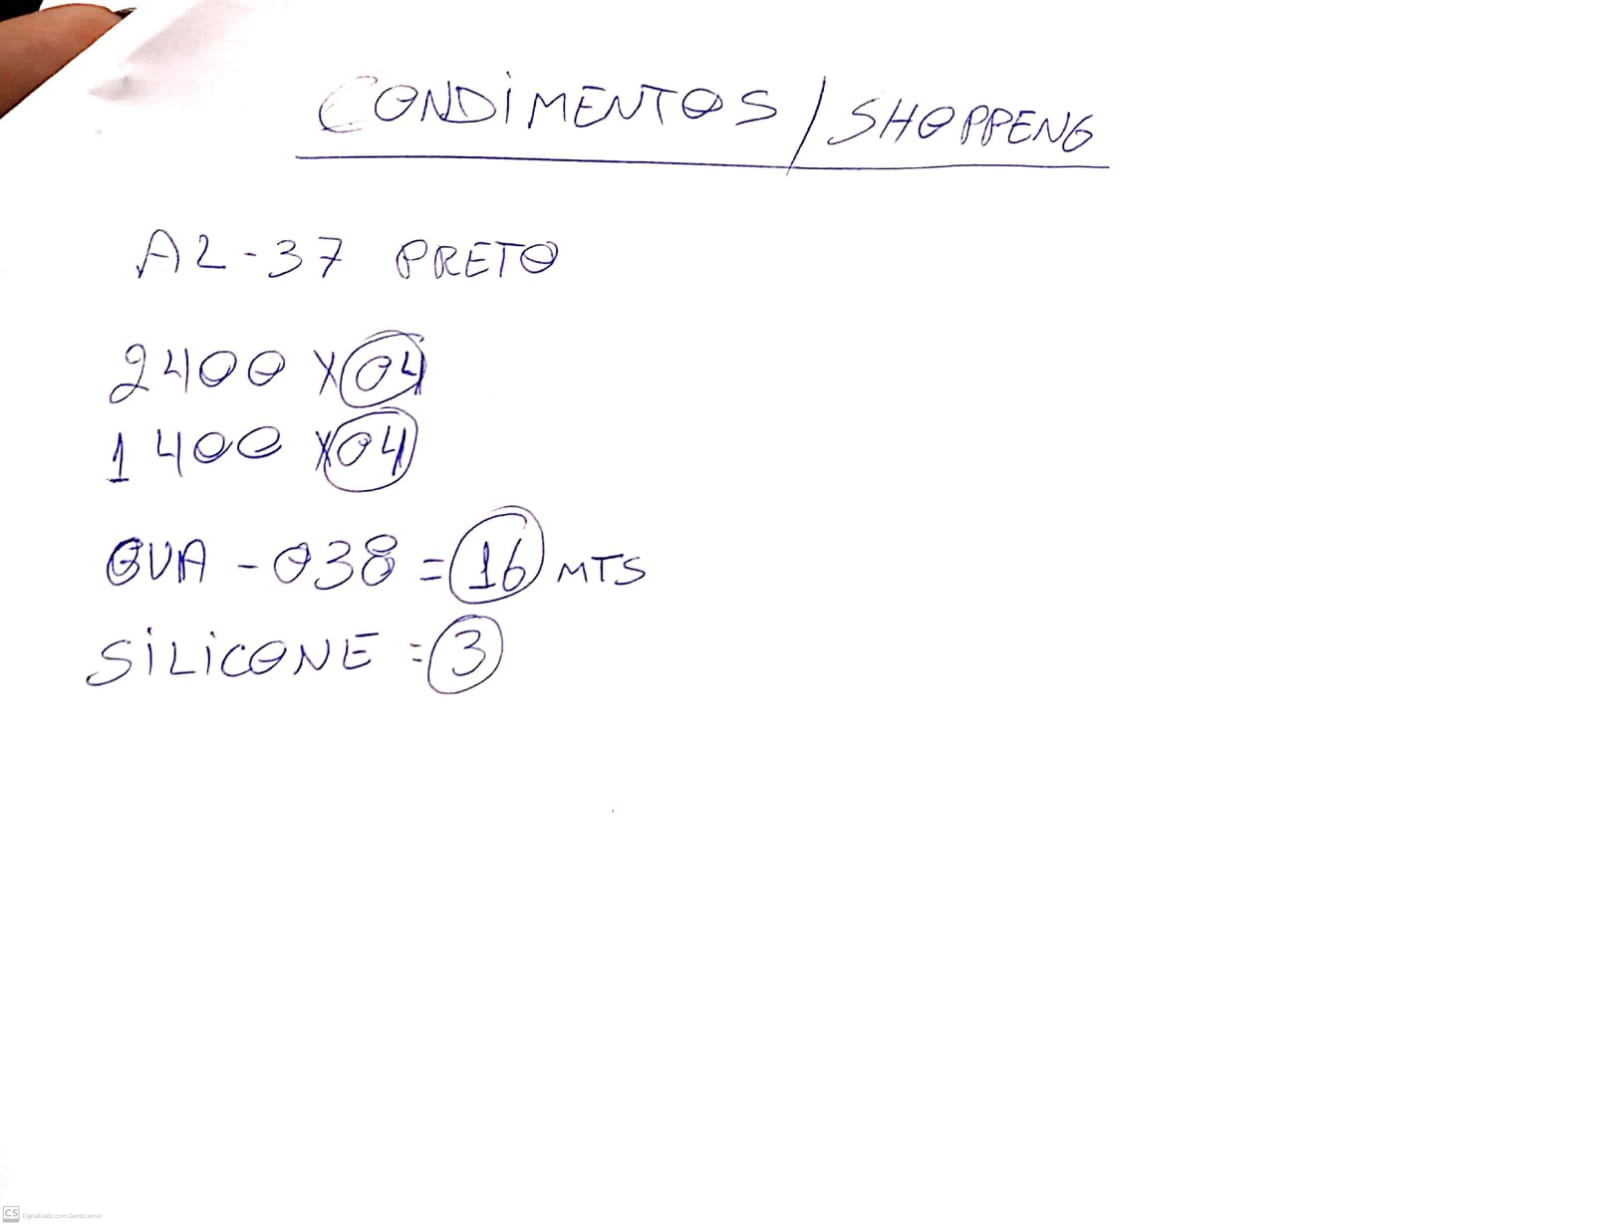 CONDIMENTOS / SHOPPENG
A2-37 PRETO
2400 X 04
1400 X 04
GUA - 038 = 16 MTS
SILICONE = 3
CS Digitalizado com CamScanner